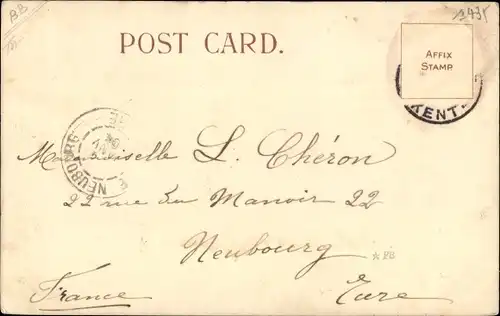 BB
POST CARD.
AFFIX
STAMP
KENT
NEUBOURG
Mademoiselle L. Chéron
22 rue du Manoir 22
Neubourg
France Eure